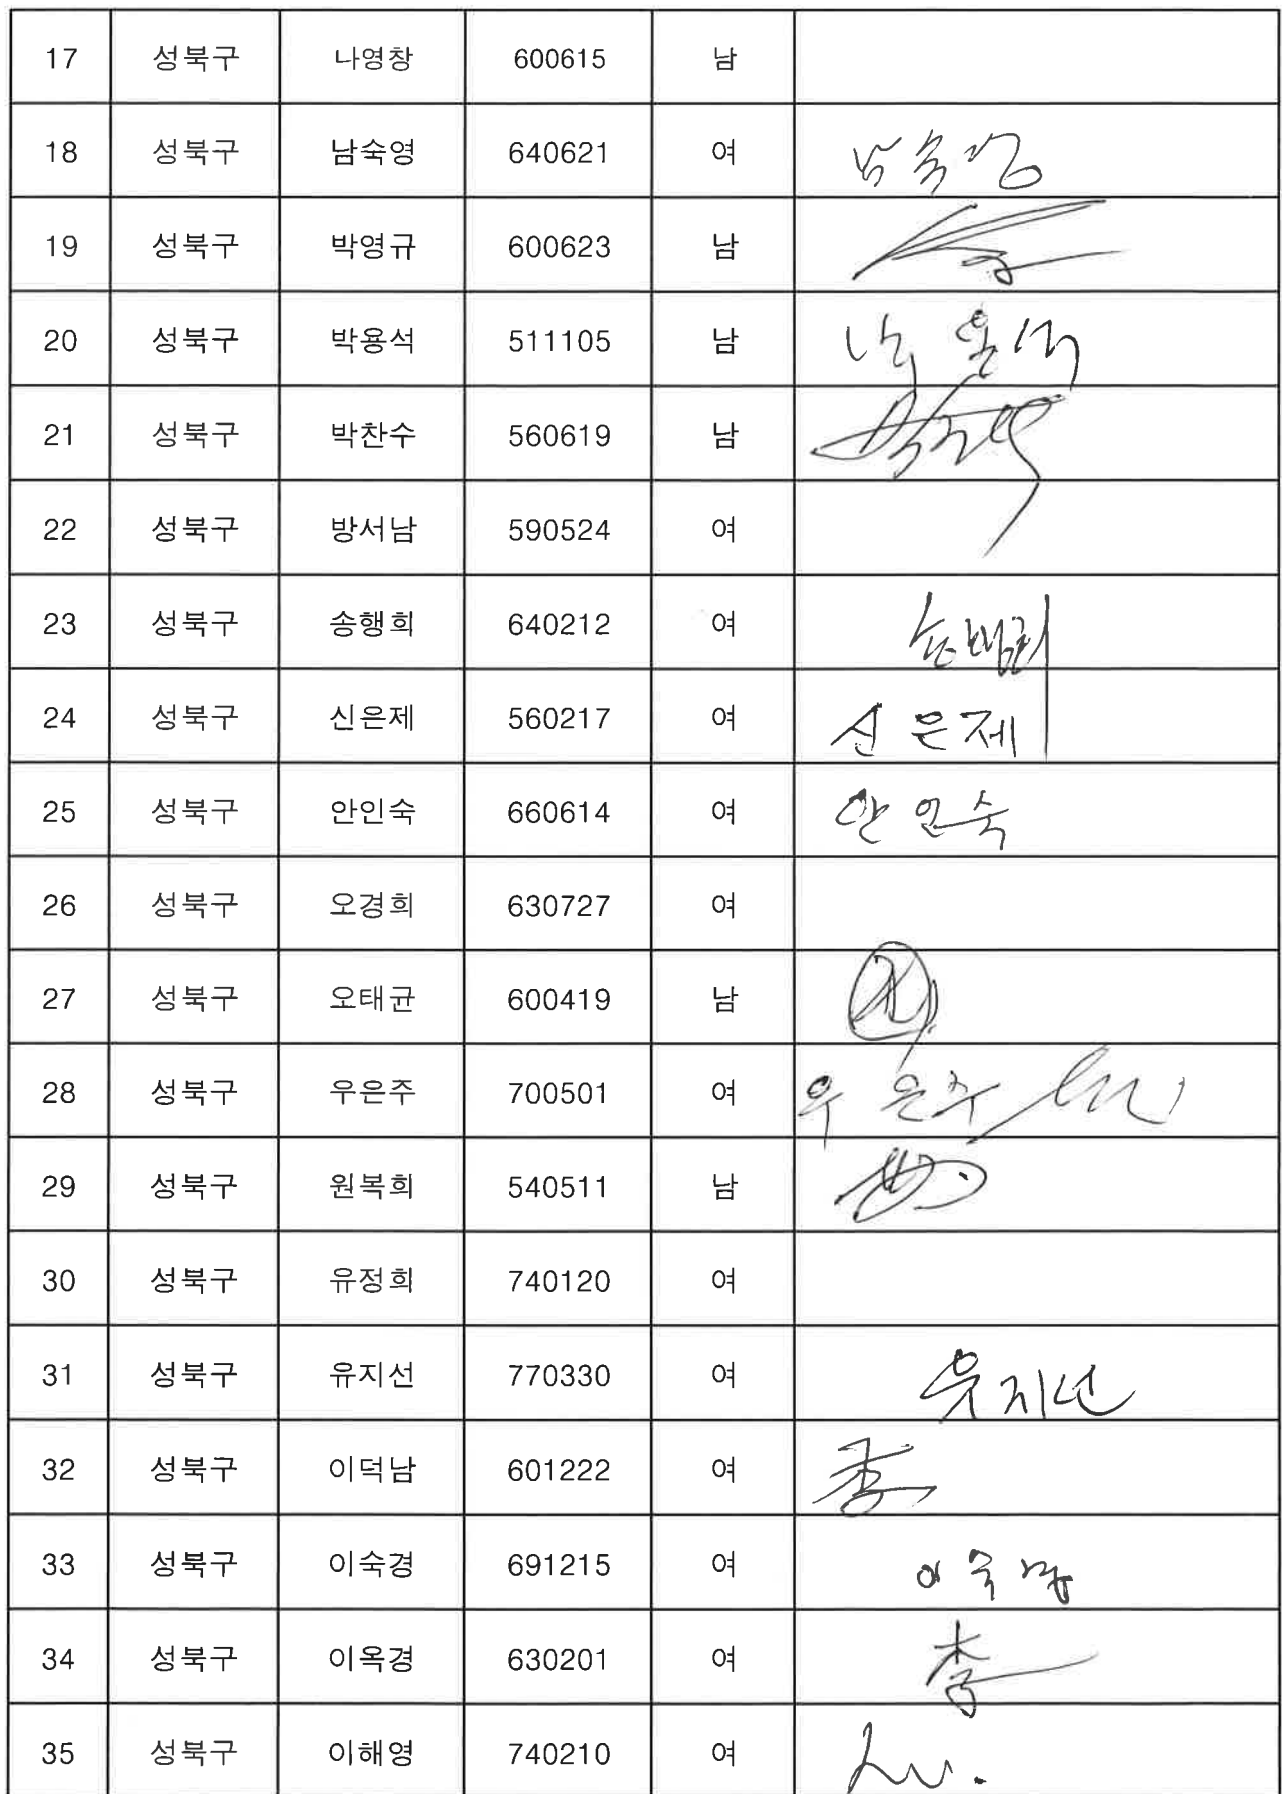 17 성북구 나영창 600615 남
18 성북구 남숙영 640621 여 남숙영
19 성북구 박영규 600623 남
20 성북구 박용석 511105 남 박용석
21 성북구 박찬수 560619 남
22 성북구 방서남 590524 여
23 성북구 송행희 640212 여 송행희
24 성북구 신은제 560217 여 신은제
25 성북구 안인숙 660614 여 안인숙
26 성북구 오경희 630727 여
27 성북구 오태균 600419 남
28 성북구 우은주 700501 여 우은주
29 성북구 원복희 540511 남
30 성북구 유정희 740120 여
31 성북구 유지선 770330 여 유지선
32 성북구 이덕남 601222 여 李
33 성북구 이숙경 691215 여 이숙경
34 성북구 이옥경 630201 여 李
35 성북구 이해영 740210 여